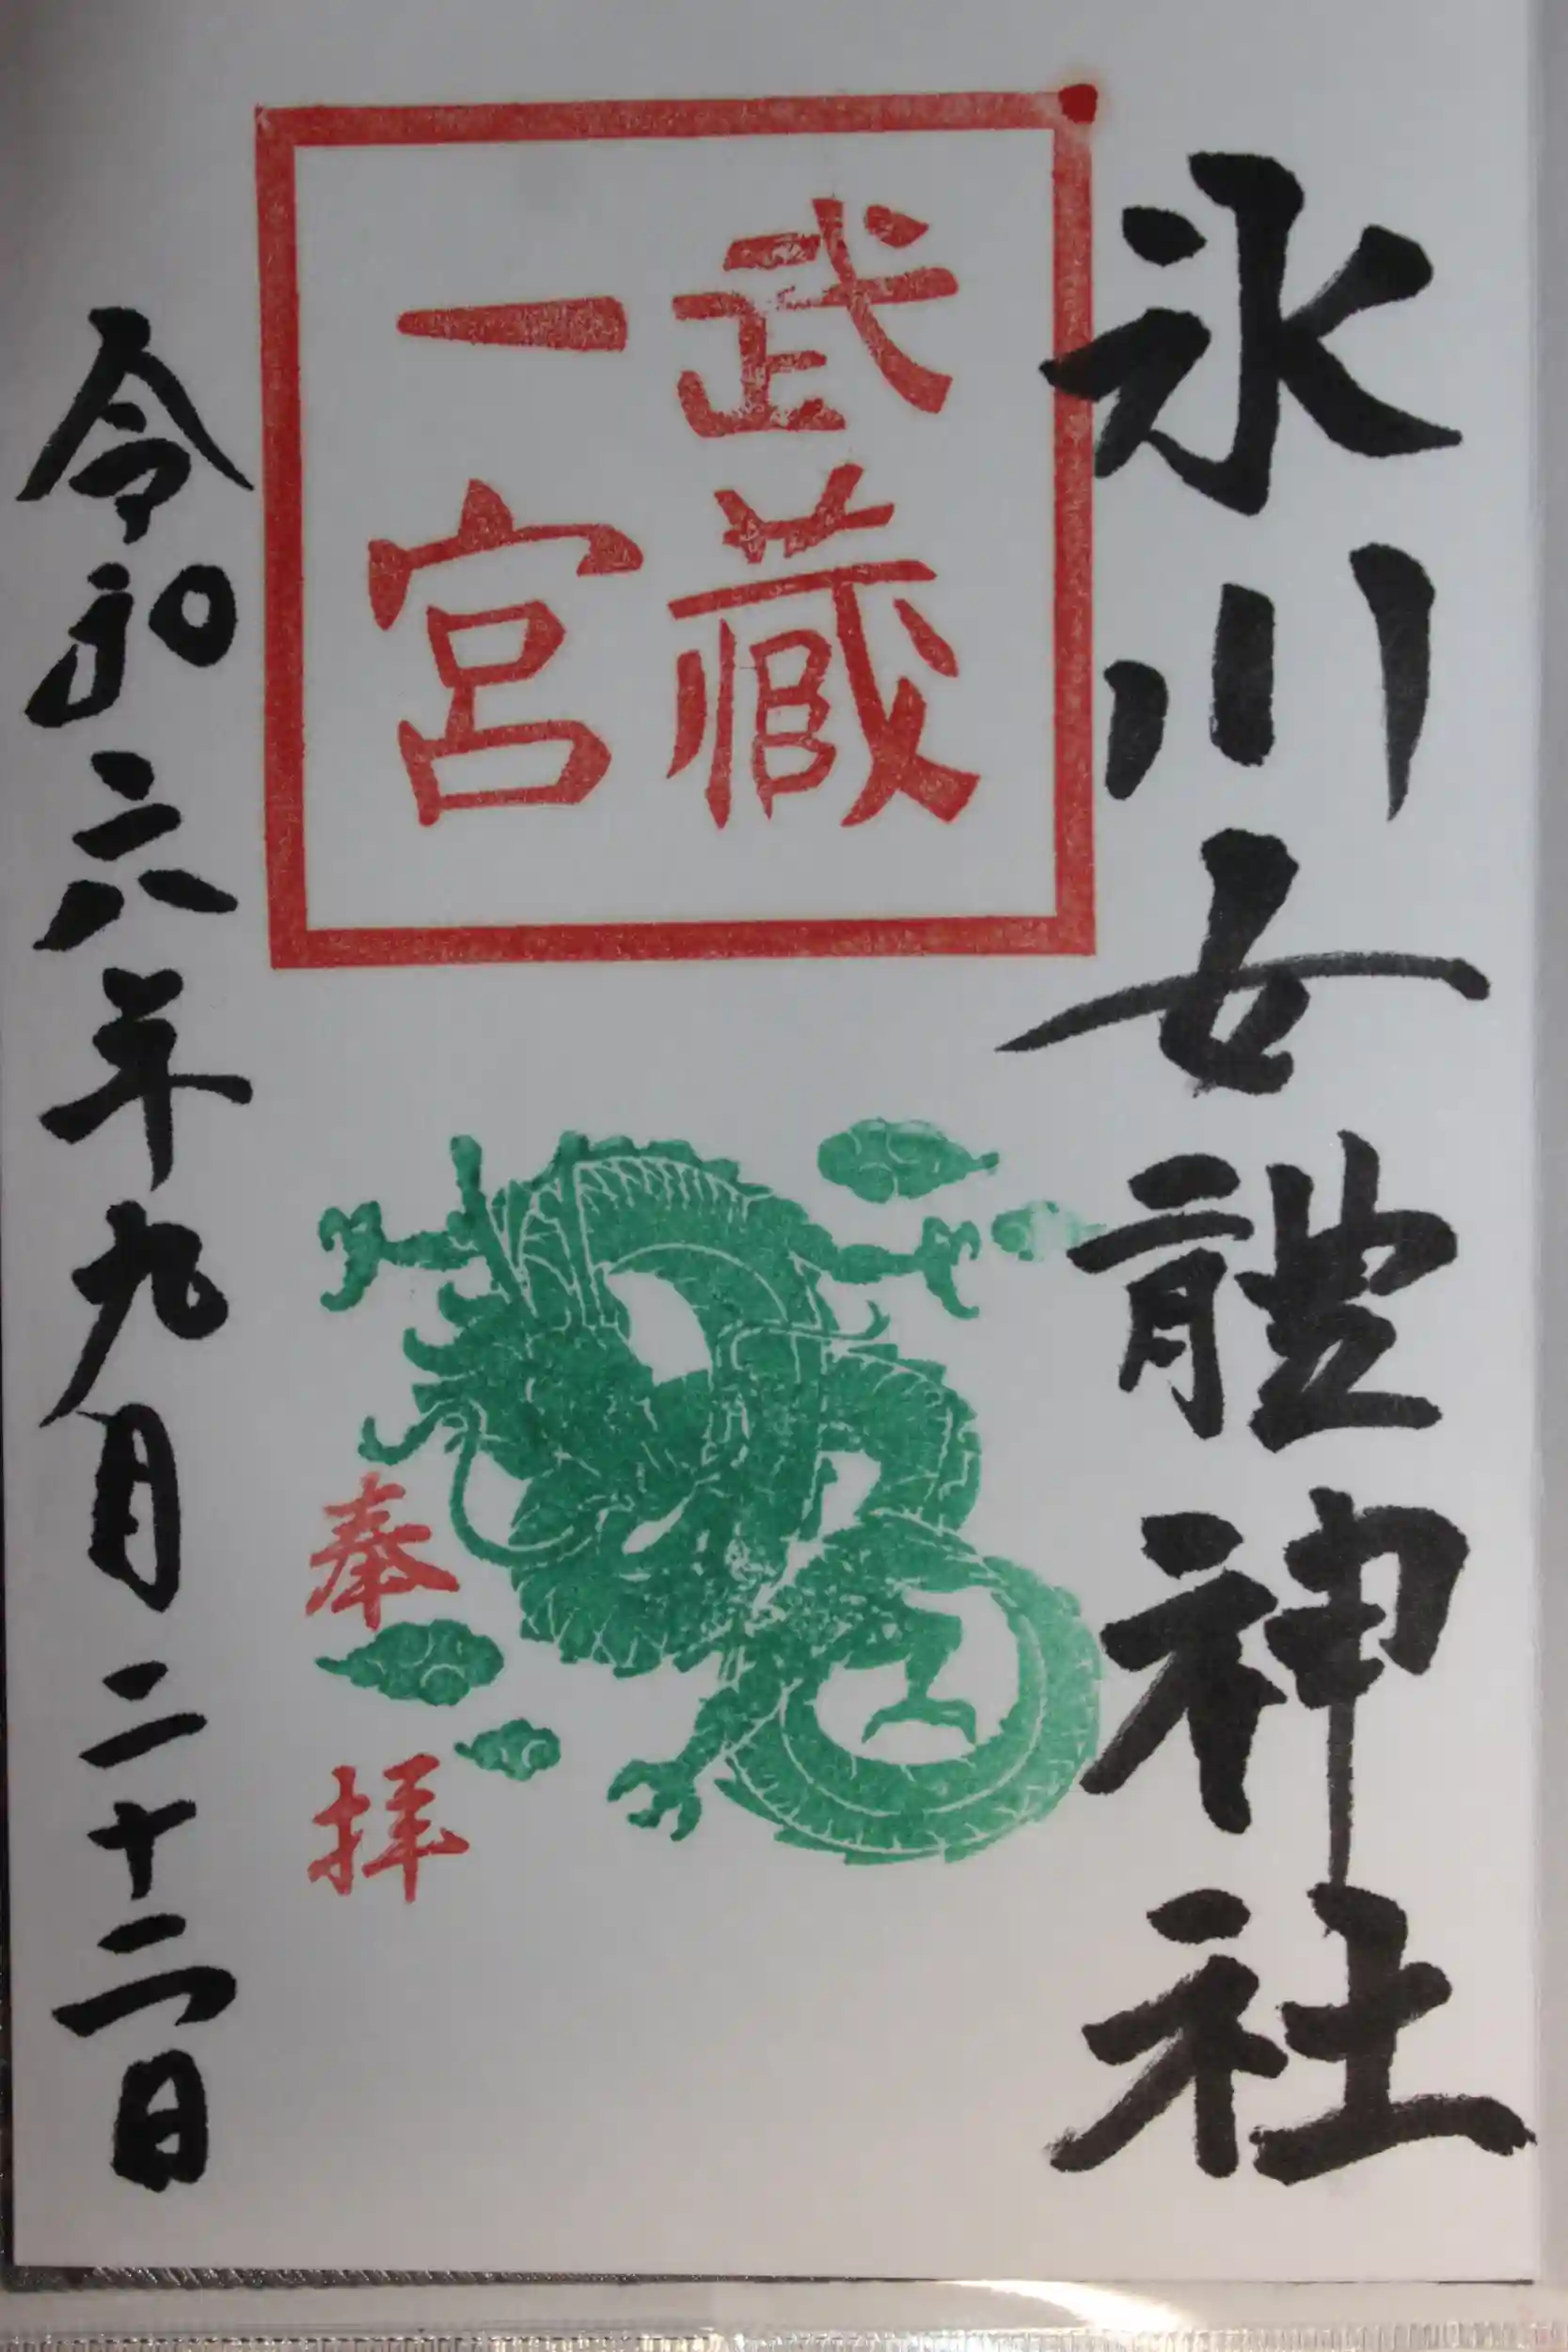 氷川女體神社
武藏
一宮
奉拝
令和六年九月二十二日